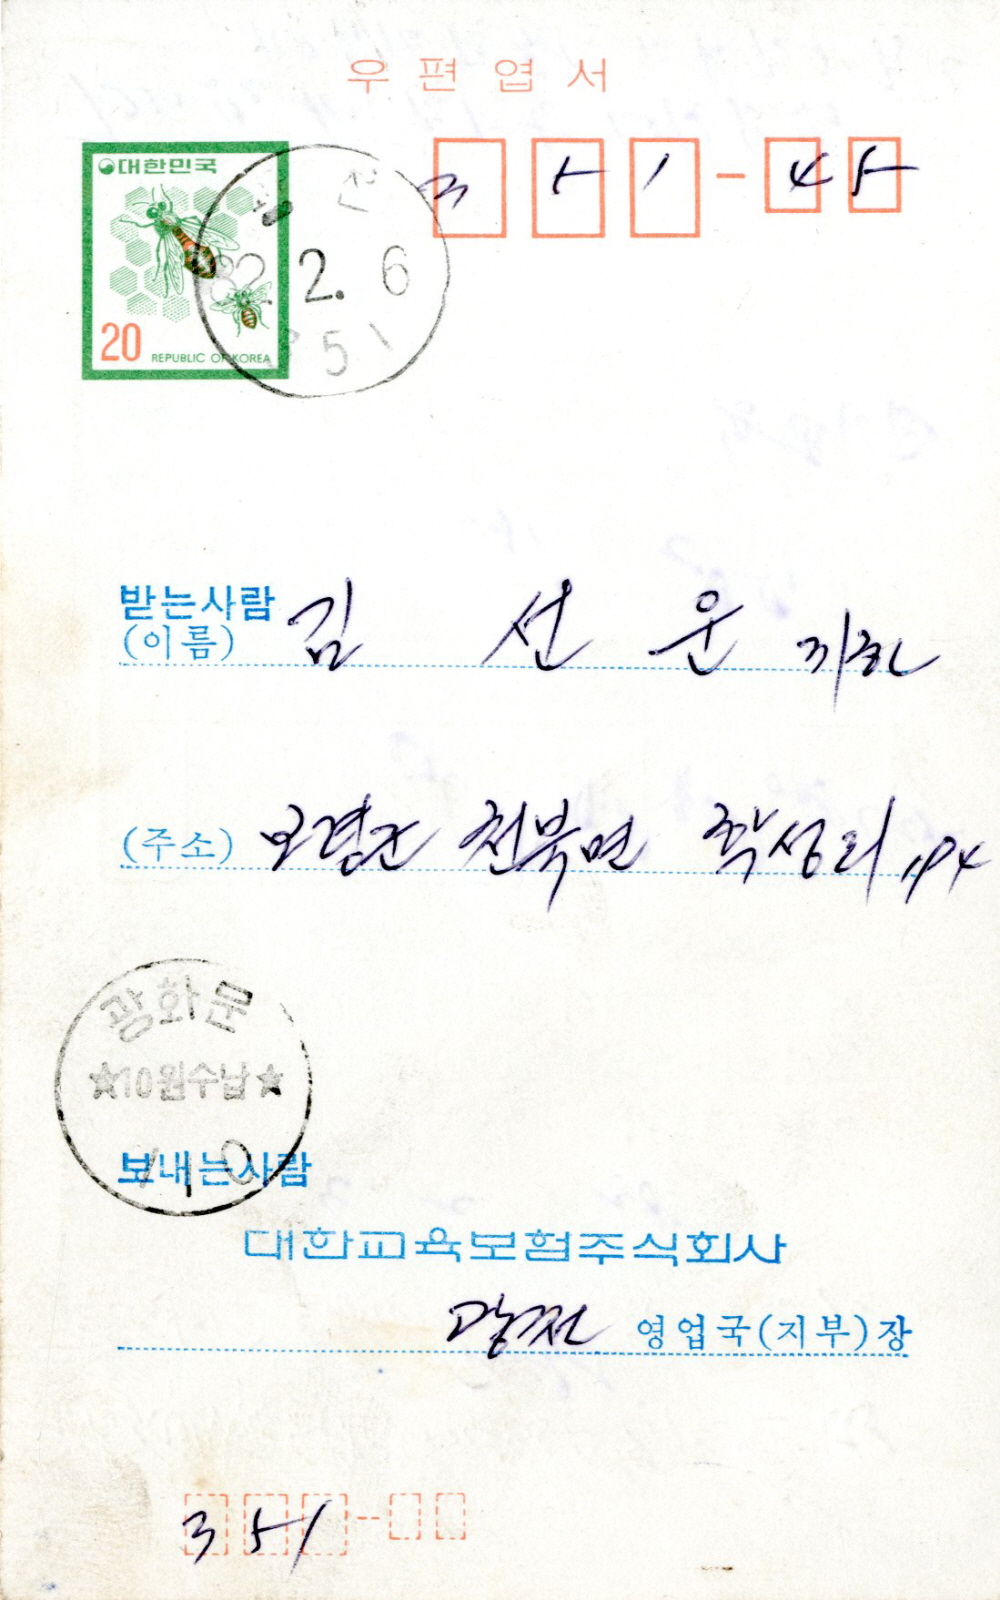 우편엽서
대한민국
351-45
82.2.6
20
REPUBLIC OF KOREA
351
받는사람
(이름) 김 선 운 귀하
(주소) 보령군 천북면 학성리 194
광화문
★10원수납★
보내는사람
대한교육보험주식회사
광천 영업국(지부)장
351